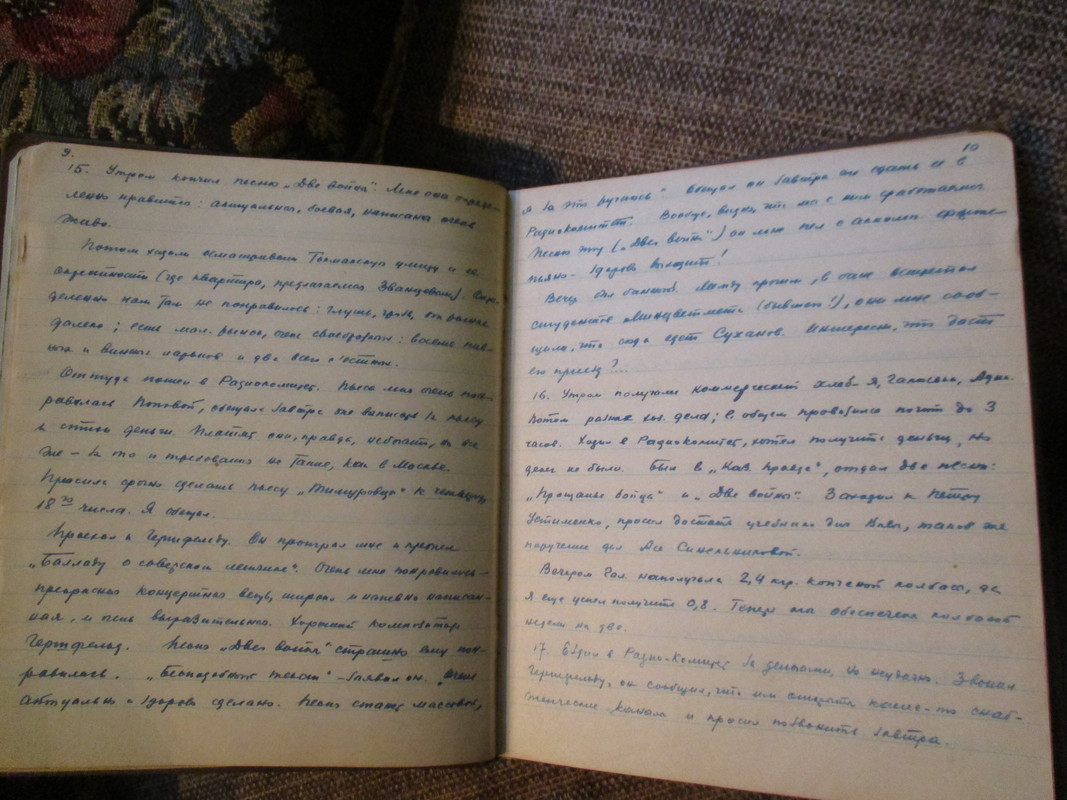 9.
15. Утром кончил песню „Два война“. Мне она опреде-
ленно нравится: актуальная, боевая, написана очень
живо.
Потом ходили осматривать улицу и ее
окрестности (где квартира, предлагаемая Званцевым).
деленно нам там не понравилось: глушь, грязь, от рынка
далеко; есть мал. рынок, очень своеобразен: восемь
и винных ларьков и два
Оттуда пошел в Радиокомитет. Пьеса моя очень пон-
равилась Поповой, обещала завтра же выписать за пьесу
и деньги. Платят они, правда, небогато, но все
же – за то и требования не такие, как в Москве.
Просила срочно сделать пьесу „Тимуровцы“ к
18 го числа. Я обещал.
Проехал к Герцфельду. Он проиграл мне и пропел
„Балладу о советском“. Очень мне понравилось –
прекрасная концертная вещь, широко и напевно написан-
ная, и очень выразительная. Хороший композитор
Герцфельд. Песня „Два война“ страшно ему пон-
равилась. „Бесподобный текст“ – заявил он. Очень
актуально и здорово сделано. Песня станет массовой,
10
я за это ручаюсь“. Обещал он завтра же сдать ее в
Радиокомитет. Вообще, видно, что мы с ним сработаемся.
Песню эту („Два война“) он мне пел с
пьяно – здорово выходит!
Вечер был банный. Мамбу прошли, в бане встретил
студентов Минцветмета (бывшего!), они мне сооб-
щили, что сюда едет Суханов. Интересно, что даст
его приезд?...
16. Утром получали коммерческий хлеб – я, Галпетя,
Потом разные хоз. дела; в общем провозился почти до 3
часов. Ходил в Радиокомитет, хотел получить деньги, но
денег не было. Был в „Каз. правде“, отдал две песни:
„Прощанье бойца“ и „Два война“. Заходил к Петру
Устименко, просил достать учебники для Вовы, такое же
поручение дал Асе Синельниковой.
Вечером Гал. наполучала 2,4 кгр. копченой колбасы, да
я еще успел получить 0,8. Теперь мы обеспечены колбасой
недели на две.
17. Ездил в Радио-Комитет за деньгами, но неудачно. Звонил
Герцфельду, он сообщил, что им спустили какие-то снаб-
женческие и просил позвонить завтра.